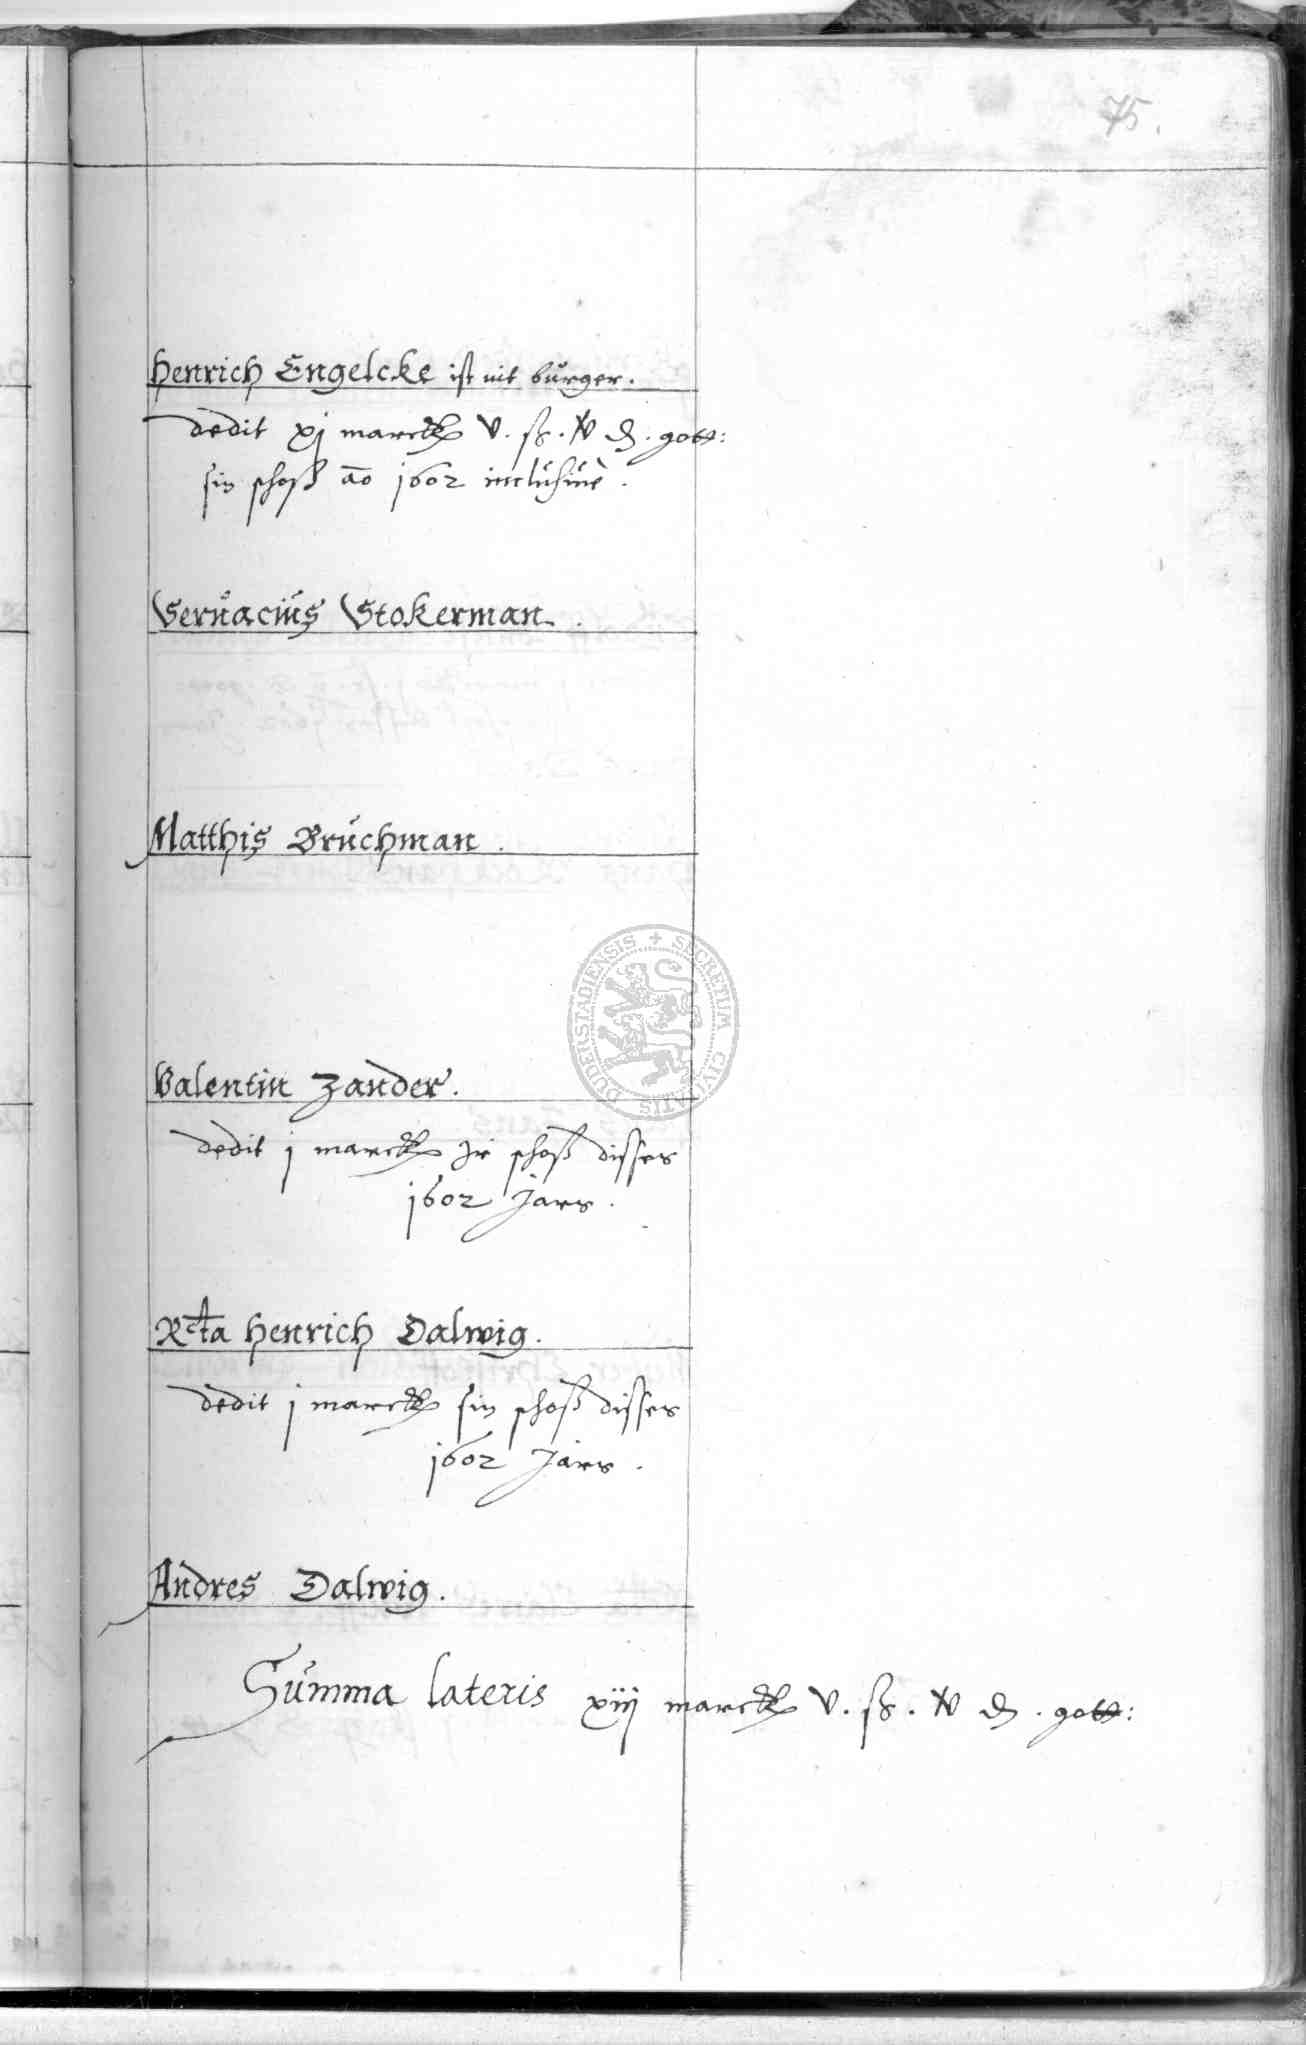 75.
Henrich Engelcke ist nit bürger.
dedit xj marck v. ß. d. gott:
sin schoß ao 1602 inclusiue.
Seruacius Stokerman.
Matthis Bruchman.
SECRETUM CIVITATIS DUDERSTADIENSIS
Valentin Zander.
dedit j marck Jr schoß disses
1602 Jars.
Rcta Henrich Dalwig.
dedit j marck sin schoß disses
1602 Jars.
Andres Dalwig.
Summa lateris xiij marck v. ß. d. gott: